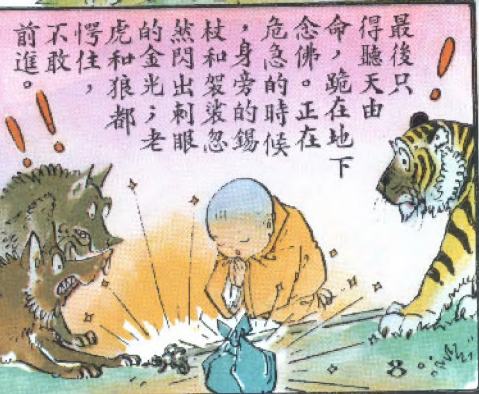 最後只
得聽天由
命，跪在地下
念佛。正在
危急的時候
，身旁的錫
杖和袈裟忽
然閃出刺眼
的金光；老
虎和狼都
愕住，
不敢
前進。
！
！！
8